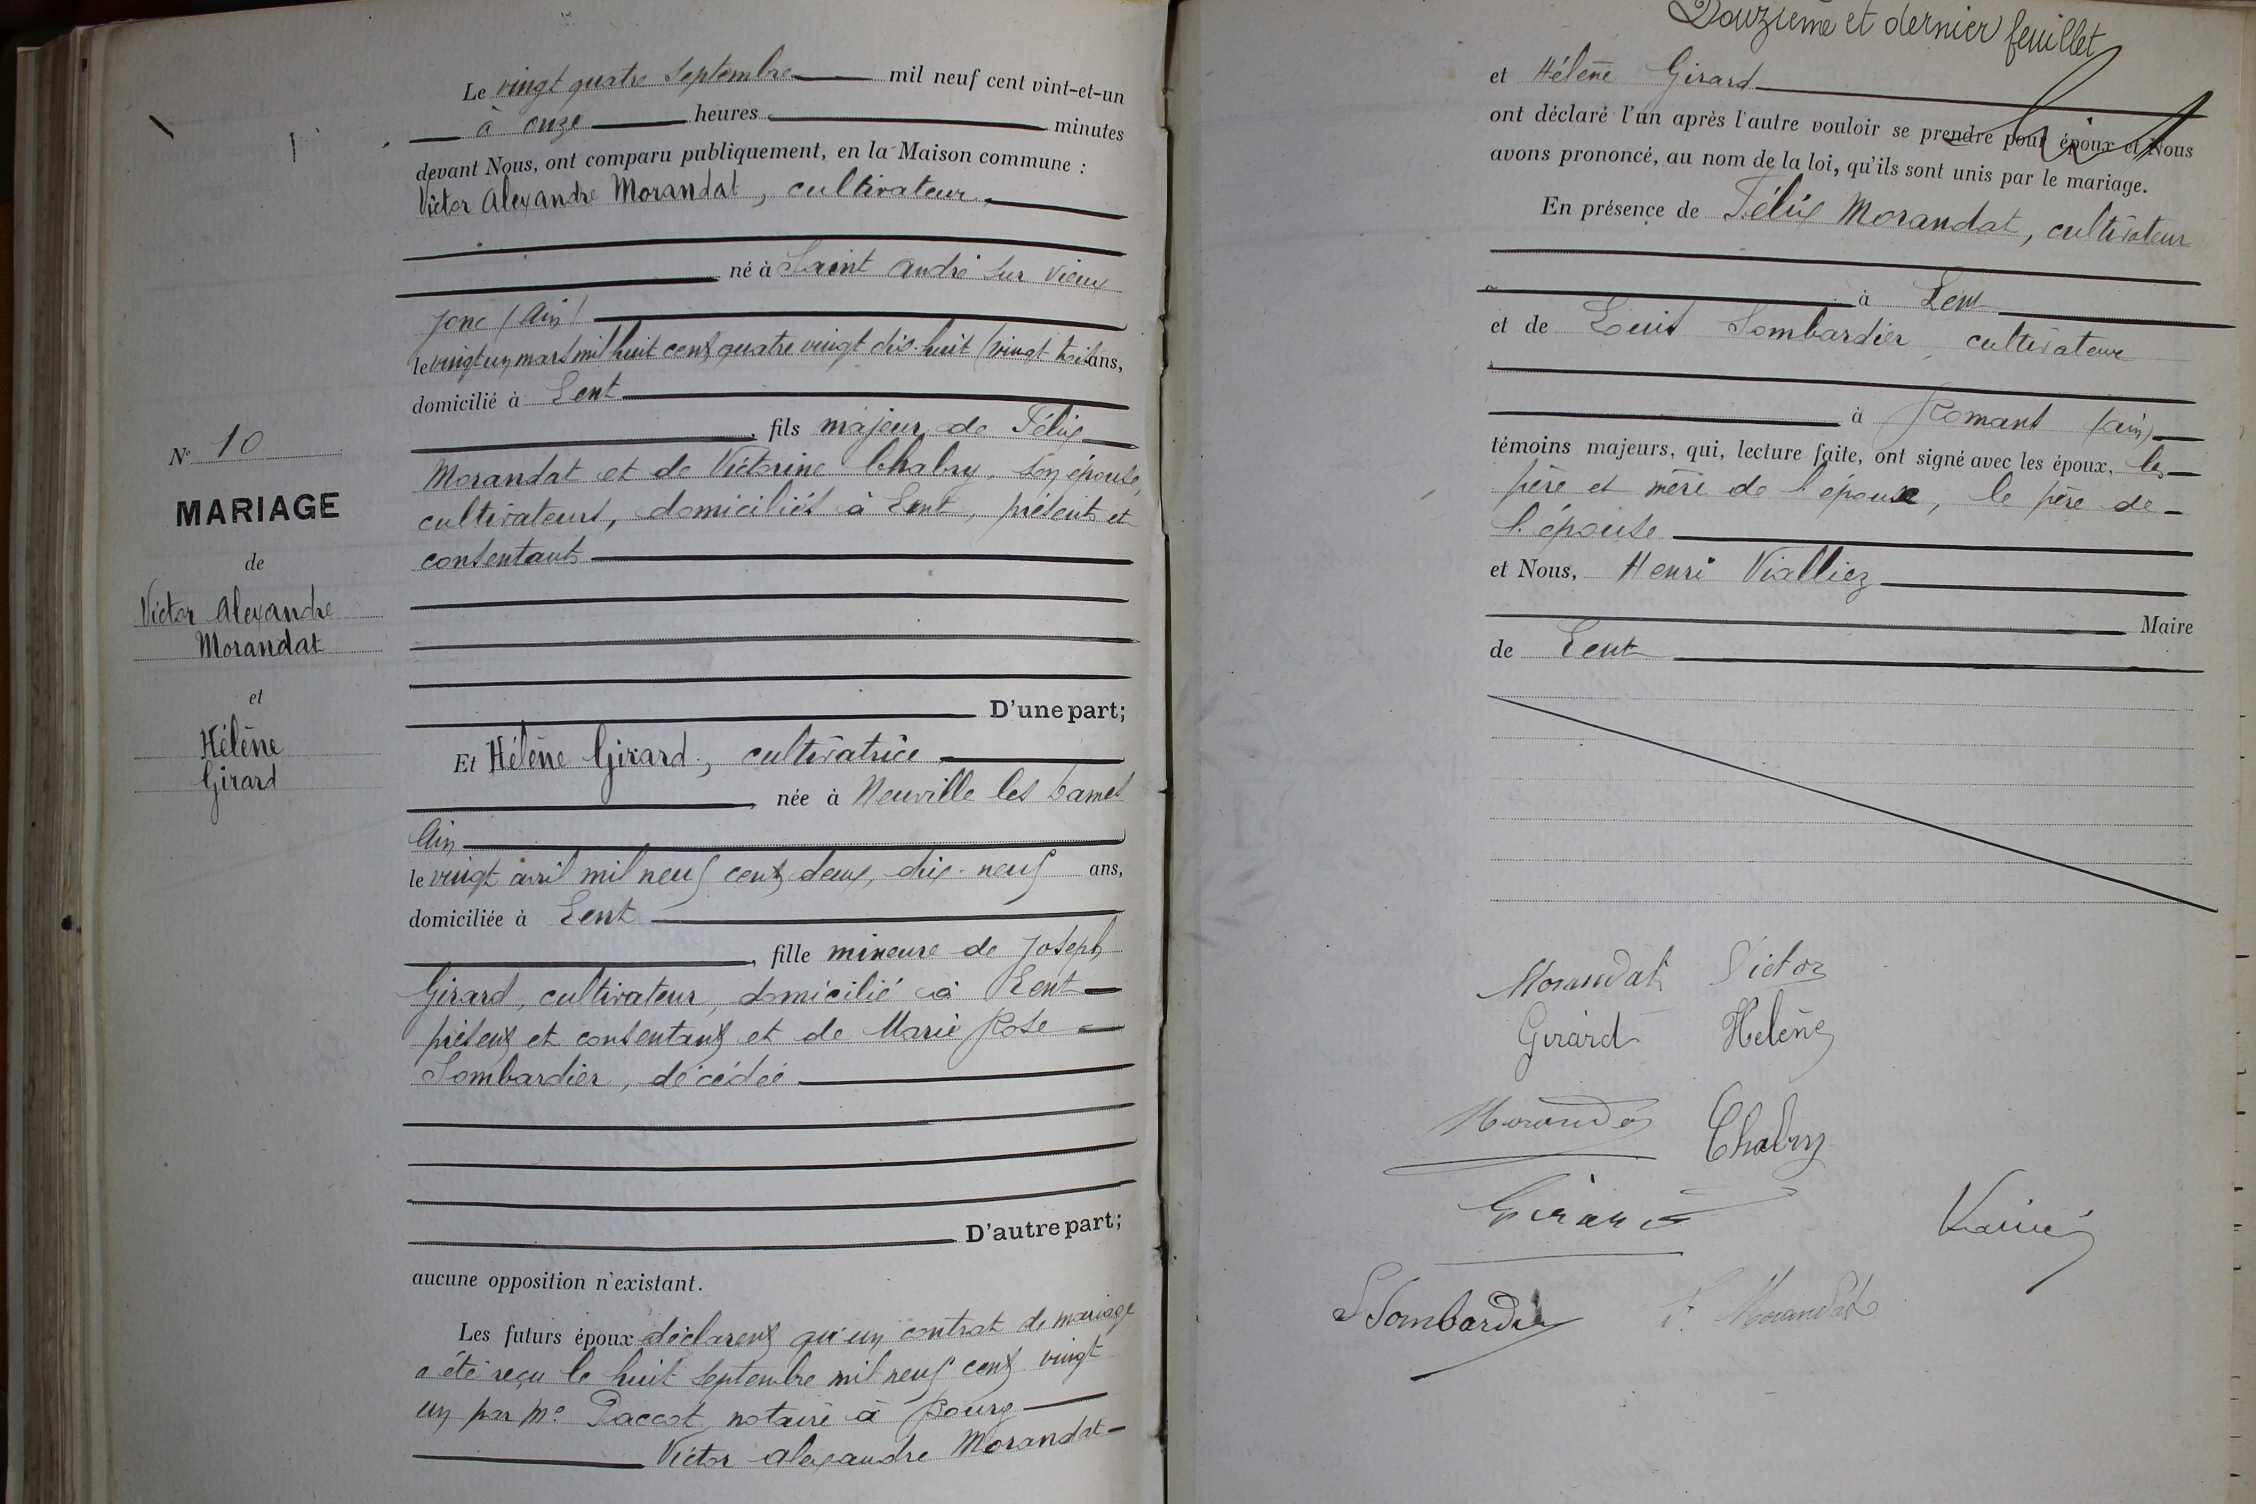 Le vingt quatre septembre mil neuf cent vint-et-un
à onze heures minutes
devant Nous, ont comparu publiquement, en la Maison commune :
Victor Alexandre Morandat, cultivateur,
né à Saint André sur Vieux
Jonc (Ain)
le vingt un mars mil huit cent quatre vingt dix-huit (vingt trois ans,
domicilié à Lent
, fils majeur de Félix
Morandat et de Victorine Chabry, son épouse,
cultivateurs, domiciliés à Lent, présents et
consentants
D'une part;
Et Hélène Girard, cultivatrice
, née à Neuville les Dames
Ain
le vingt avril mil neuf cent deux, dix-neuf ans,
domiciliée à Lent
, fille mineure de Joseph
Girard, cultivateur, domicilié à Lent
présent et consentant et de Marie Rose
Sombardier, décédée
D'autre part;
aucune opposition n'existant.
Les futurs époux déclarent qu'un contrat de mariage
a été reçu le huit septembre mil neuf cent vingt
un par Me Paccot notaire à Bourg
Victor Alexandre Morandat
N° 10
MARIAGE
de
Victor Alexandre
Morandat
et
Hélène
Girard
Douzième et dernier feuillet
et Hélène Girard
ont déclaré l'un après l'autre vouloir se prendre pour époux et Nous
avons prononcé, au nom de la loi, qu'ils sont unis par le mariage.
En présence de Félix Morandat, cultivateur
à Lent
et de Louis Sombardier, cultivateur
à Romans (Ain)
témoins majeurs, qui, lecture faite, ont signé avec les époux, les
père et mère de l'époux, le père de
l'épouse
et Nous, Henri Vialliez
Maire
de Lent
Morandat Victor
Girard Helène
Morandat Chabry
Girard
Sombardier F. Morandat